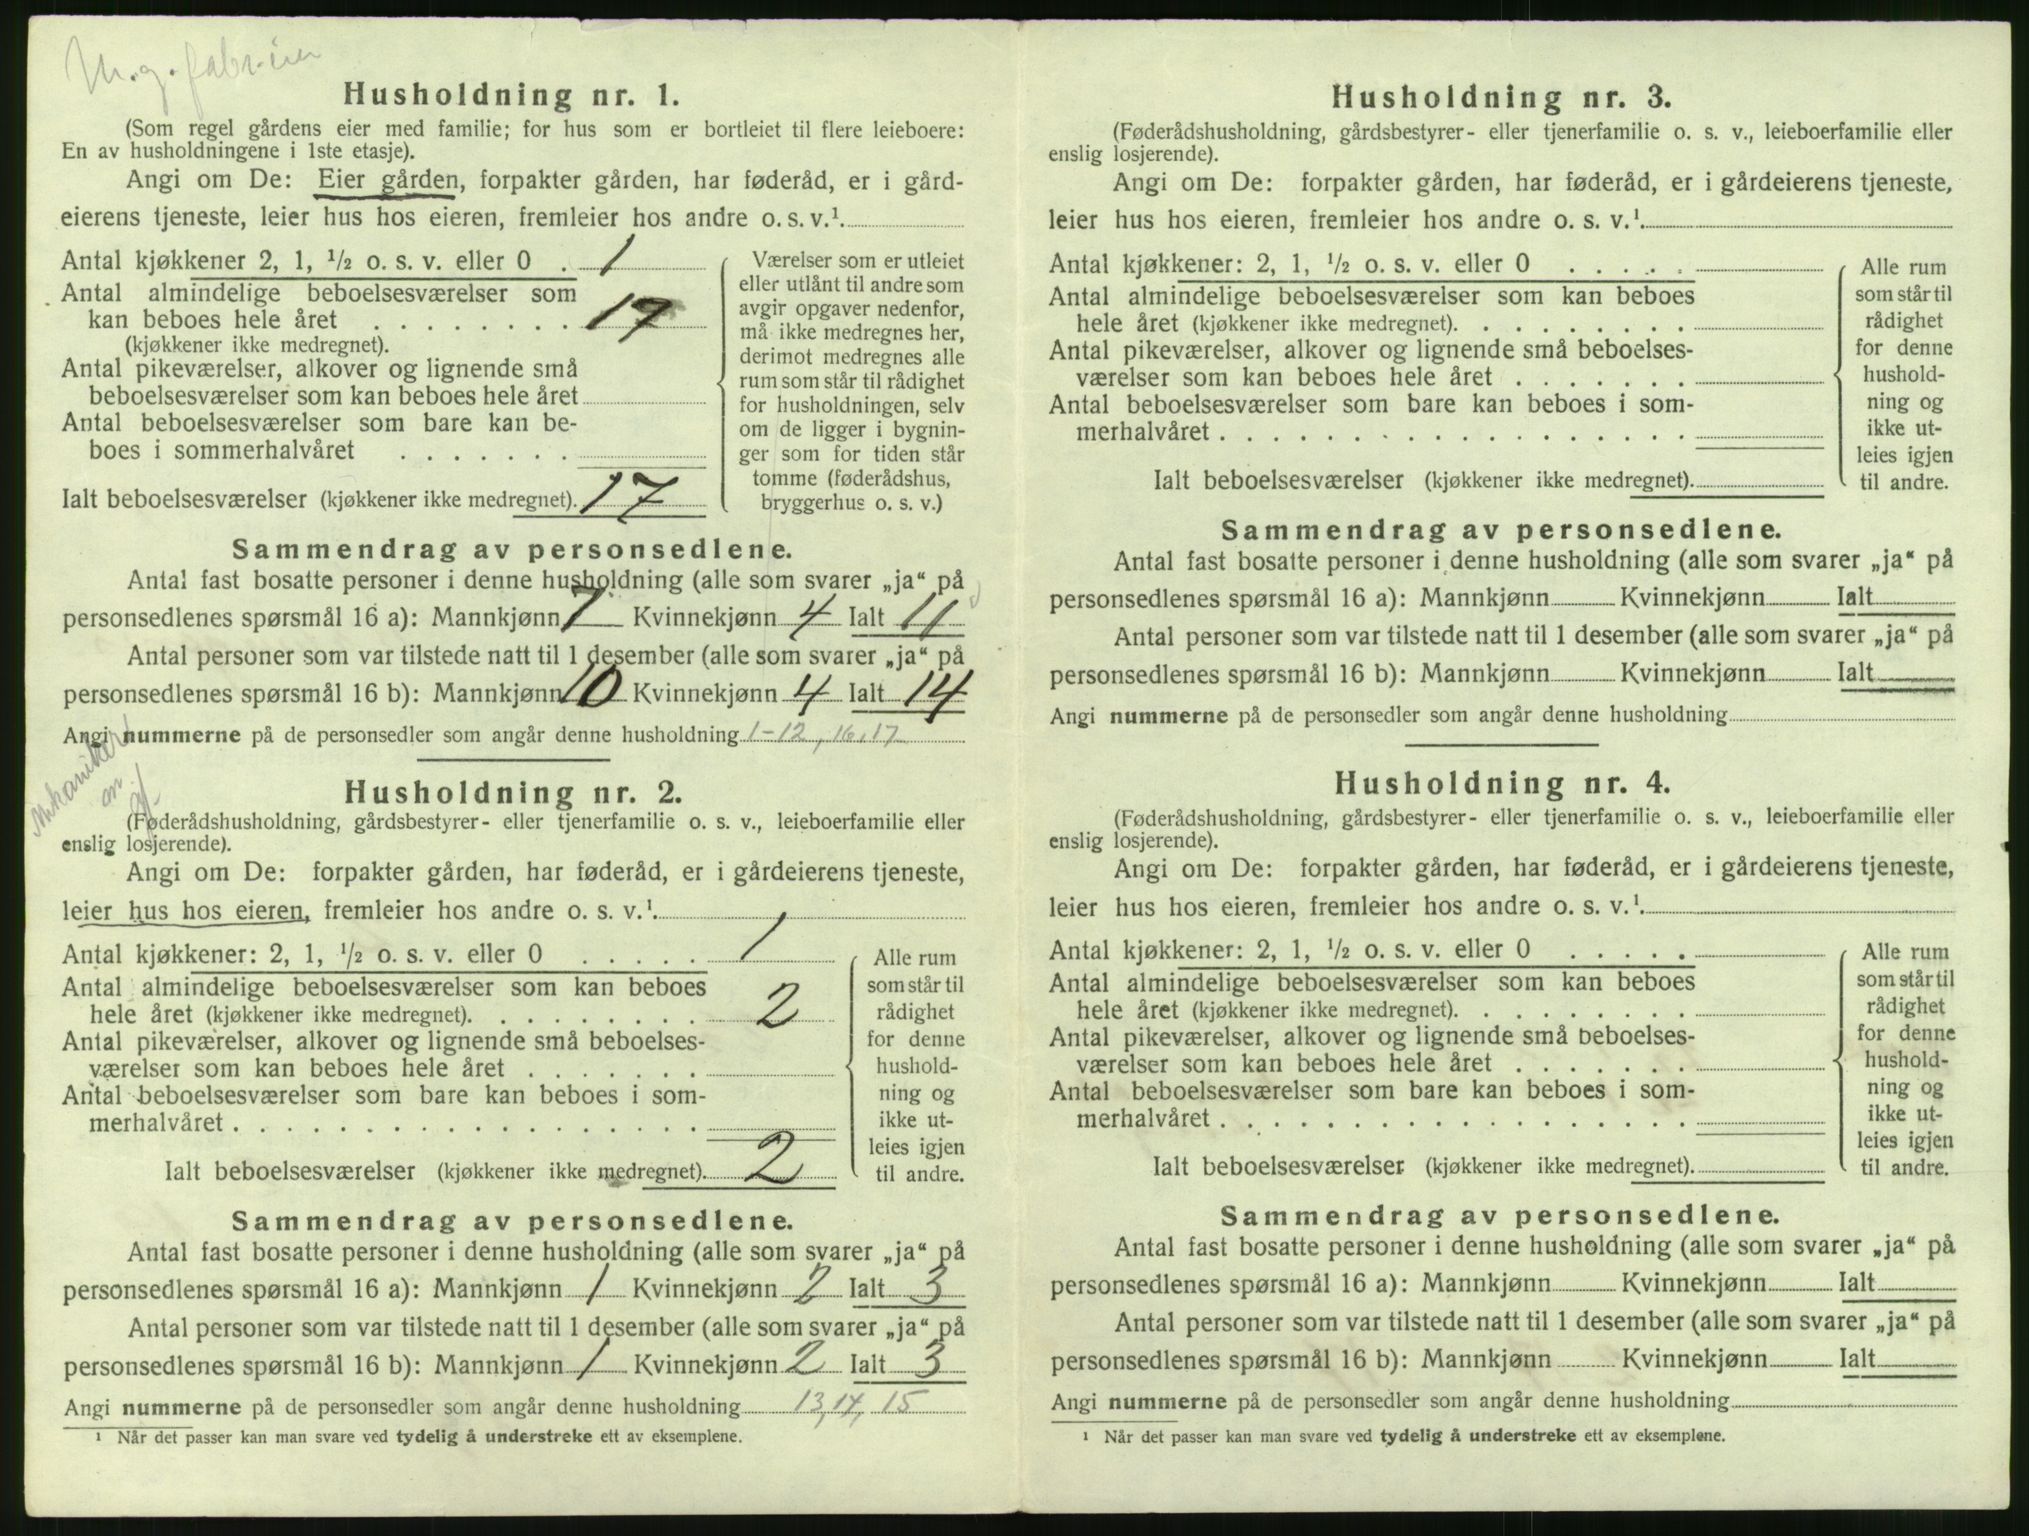 M.g. fabr.eier
Husholdning nr. 1.
(Som regel gårdens eier med familie; for hus som er bortleiet til flere leieboere:
En av husholdningene i 1ste etasje).
Angi om De: Eier gården, forpakter gården, har føderåd, er i gård-
eierens tjeneste, leier hus hos eieren, fremleier hos andre o. s. v.¹
Antal kjøkkener 2, 1, ½ o. s. v. eller 0 . 1
Antal almindelige beboelsesværelser som
kan beboes hele året . . . . . . . . 17
(kjøkkener ikke medregnet).
Antal pikeværelser, alkover og lignende små
beboelsesværelser som kan beboes hele året
Antal beboelsesværelser som bare kan be-
boes i sommerhalvåret . . . . . . .
Ialt beboelsesværelser (kjøkkener ikke medregnet). 17
Værelser som er utleiet
eller utlånt til andre som
avgir opgaver nedenfor,
må ikke medregnes her,
derimot medregnes alle
rum som står til rådighet
for husholdningen, selv
om de ligger i bygnin-
ger som for tiden står
tomme (føderådshus,
bryggerhus o. s. v.)
Sammendrag av personsedlene.
Antal fast bosatte personer i denne husholdning (alle som svarer „ja“ på
personsedlenes spørsmål 16 a): Mannkjønn 7 Kvinnekjønn 4 Ialt 11
Antal personer som var tilstede natt til 1 desember (alle som svarer „ja“ på
personsedlenes spørsmål 16 b): Mannkjønn 10 Kvinnekjønn 4 Ialt 14
Angi nummerne på de personsedler som angår denne husholdning 1-12, 16, 17
Husholdning nr. 2.
(Føderådshusholdning, gårdsbestyrer- eller tjenerfamilie o. s. v., leieboerfamilie eller
enslig losjerende).
Angi om De: forpakter gården, har føderåd, er i gårdeierens tjeneste,
leier hus hos eieren, fremleier hos andre o. s. v.¹
Antal kjøkkener: 2, 1, ½ o. s. v. eller 0 . . . . . 1
Antal almindelige beboelsesværelser som kan beboes
hele året (kjøkkener ikke medregnet). . . . . . . . . 2
Antal pikeværelser, alkover og lignende små beboelses-
værelser som kan beboes hele året . . . . . . .
Antal beboelsesværelser som bare kan beboes i som-
merhalvåret . . . . . . . . . . . . . . . . . .
Ialt beboelsesværelser (kjøkkener ikke medregnet). 2
Alle rum
som står til
rådighet
for denne
hushold-
ning og
ikke ut-
leies igjen
til andre.
Sammendrag av personsedlene.
Antal fast bosatte personer i denne husholdning (alle som svarer „ja“ på
personsedlenes spørsmål 16 a): Mannkjønn 1 Kvinnekjønn 2 Ialt 3
Antal personer som var tilstede natt til 1 desember (alle som svarer „ja“ på
personsedlenes spørsmål 16 b): Mannkjønn 1 Kvinnekjønn 2 Ialt 3
Angi nummerne på de personsedler som angår denne husholdning 13, 14, 15
¹ Når det passer kan man svare ved tydelig å understreke ett av eksemplene.
Husholdning nr. 3.
(Føderådshusholdning, gårdsbestyrer- eller tjenerfamilie o. s. v., leieboerfamilie eller
enslig losjerende).
Angi om De: forpakter gården, har føderåd, er i gårdeierens tjeneste,
leier hus hos eieren, fremleier hos andre o. s. v.¹
Antal kjøkkener: 2, 1, ½ o. s. v. eller 0 . . . . .
Antal almindelige beboelsesværelser som kan beboes
hele året (kjøkkener ikke medregnet). . . . . . . . .
Antal pikeværelser, alkover og lignende små beboelses-
værelser som kan beboes hele året . . . . . . .
Antal beboelsesværelser som bare kan beboes i som-
merhalvåret . . . . . . . . . . . . . . . . . .
Ialt beboelsesværelser (kjøkkener ikke medregnet).
Alle rum
som står til
rådighet
for denne
hushold-
ning og
ikke ut-
leies igjen
til andre.
Sammendrag av personsedlene.
Antal fast bosatte personer i denne husholdning (alle som svarer „ja“ på
personsedlenes spørsmål 16 a): Mannkjønn Kvinnekjønn Ialt
Antal personer som var tilstede natt til 1 desember (alle som svarer „ja“ på
personsedlenes spørsmål 16 b): Mannkjønn Kvinnekjønn Ialt
Angi nummerne på de personsedler som angår denne husholdning
Husholdning nr. 4.
(Føderådshusholdning, gårdsbestyrer- eller tjenerfamilie o. s. v., leieboerfamilie eller
enslig losjerende).
Angi om De: forpakter gården, har føderåd, er i gårdeierens tjeneste,
leier hus hos eieren, fremleier hos andre o. s. v.¹
Antal kjøkkener: 2, 1, ½ o. s. v. eller 0 . . . . .
Antal almindelige beboelsesværelser som kan beboes
hele året (kjøkkener ikke medregnet). . . . . . . . .
Antal pikeværelser, alkover og lignende små beboelses-
værelser som kan beboes hele året . . . . . . .
Antal beboelsesværelser som bare kan beboes i som-
merhalvåret . . . . . . . . . . . . . . . . . .
Ialt beboelsesværelser (kjøkkener ikke medregnet).
Alle rum
som står til
rådighet
for denne
hushold-
ning og
ikke ut-
leies igjen
til andre.
Sammendrag av personsedlene.
Antal fast bosatte personer i denne husholdning (alle som svarer „ja“ på
personsedlenes spørsmål 16 a): Mannkjønn Kvinnekjønn Ialt
Antal personer som var tilstede natt til 1 desember (alle som svarer „ja“ på
personsedlenes spørsmål 16 b): Mannkjønn Kvinnekjønn Ialt
Angi nummerne på de personsedler som angår denne husholdning
¹ Når det passer kan man svare ved tydelig å understreke ett av eksemplene.